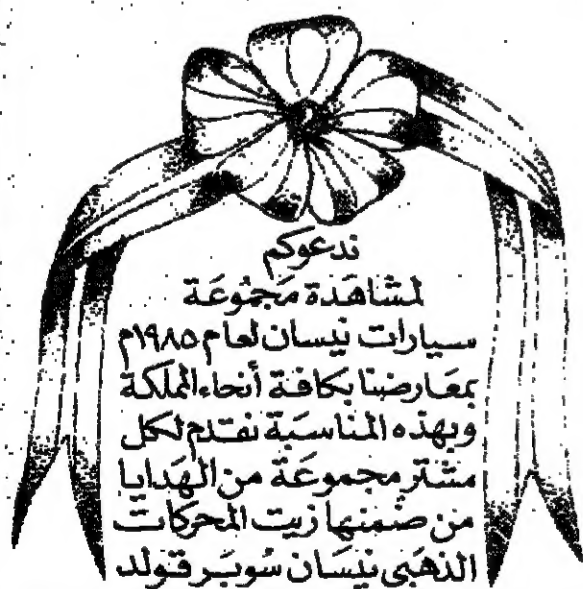 ندعوكم
لمشاهدة مجموعة
سيارات نيسان لعام ١٩٨٥م
بمعارضنا بكافة أنحاء المملكة
وبهذه المناسبة نقدم لكل
مشتر مجموعة من الهدايا
من ضمنها زيت المحركات
الذهبي نيسان سوبر قولد